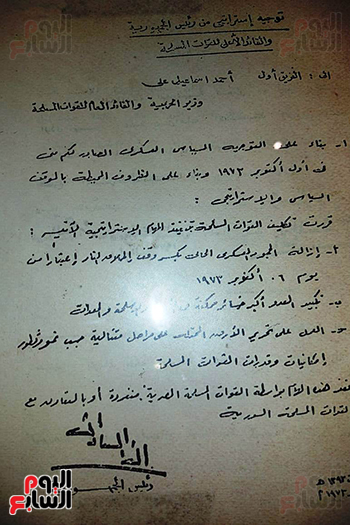 توجيه إستراتيجى من رئيس الجمهورية
والقائد الأعلى للقوات المسلحة
إلى : الفريق أول أحمد اسماعيل على
وزير الحربية والقائد العام للقوات المسلحة
١- بناء على التوجيه السياسى العسكرى الصادر لكم منى
فى أول أكتوبر ١٩٧٣ وبناء على الظروف المحيطة بالموقف
السياسى والإستراتيجى :
قررت تكليف القوات المسلحة بتنفيذ المهام الإستراتيجية الآتية :
أ- إزالة الجمود العسكرى الحالى بكسر وقف إطلاق النار إعتبارا من
يوم ٠٦ أكتوبر ١٩٧٣
ب- تكبيد العدو أكبر خسائر ممكنة والأسلحة والمعدات
ج- العمل على تحرير الأرض المحتلة على مراحل متتالية حسب نمو وتطور
إمكانيات وقدرات القوات المسلحة
تنفذ هذه المهام بواسطة القوات المسلحة المصرية منفردة أو بالتعاون مع
القوات المسلحة السورية
أنور السادات
رئيس
١٣٩٣ هـ
١٩٧٣ م
اليوم السابع
اليوم السابع